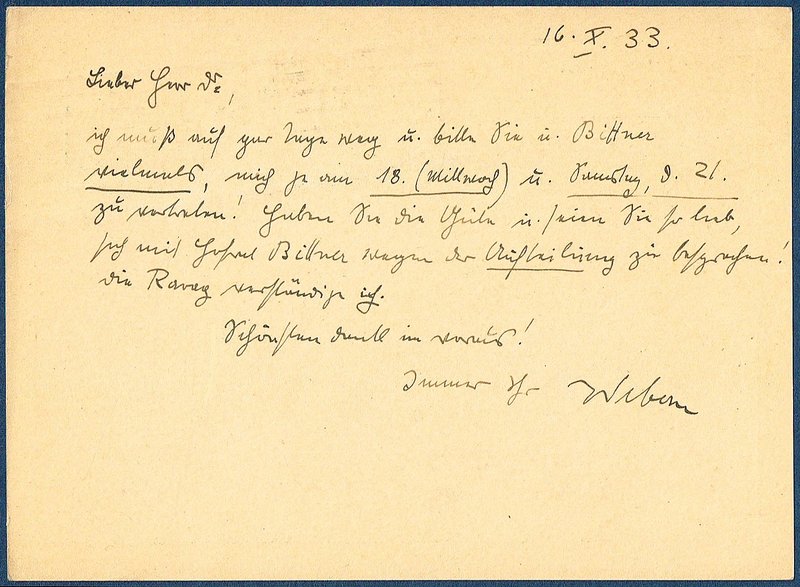 16. X. 33.
Lieber Herr Dr.,
ich muß auf paar Tage weg u. bitte Sie u. Bittner
vielmals, mich ja am 18. (Mittwoch) u. Samstag, d. 21.
zu vertreten! Haben Sie die Güte u. seien Sie so lieb,
sich mit Hofrat Bittner wegen der Aufteilung zu besprechen!
Die Ravag verständige ich.
Schönsten Dank im voraus!
Immer Ihr Webern